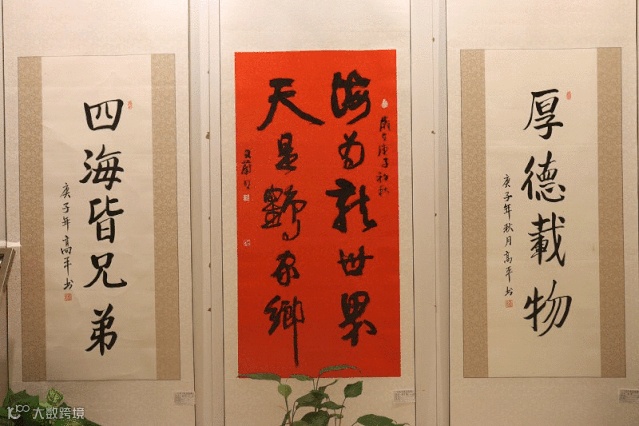 四海皆兄弟
庚子年 高平书
海为龙世界
天是鹤家乡
歲在庚子初秋
厚德載物
庚子年秋月 高平书
大数跨境